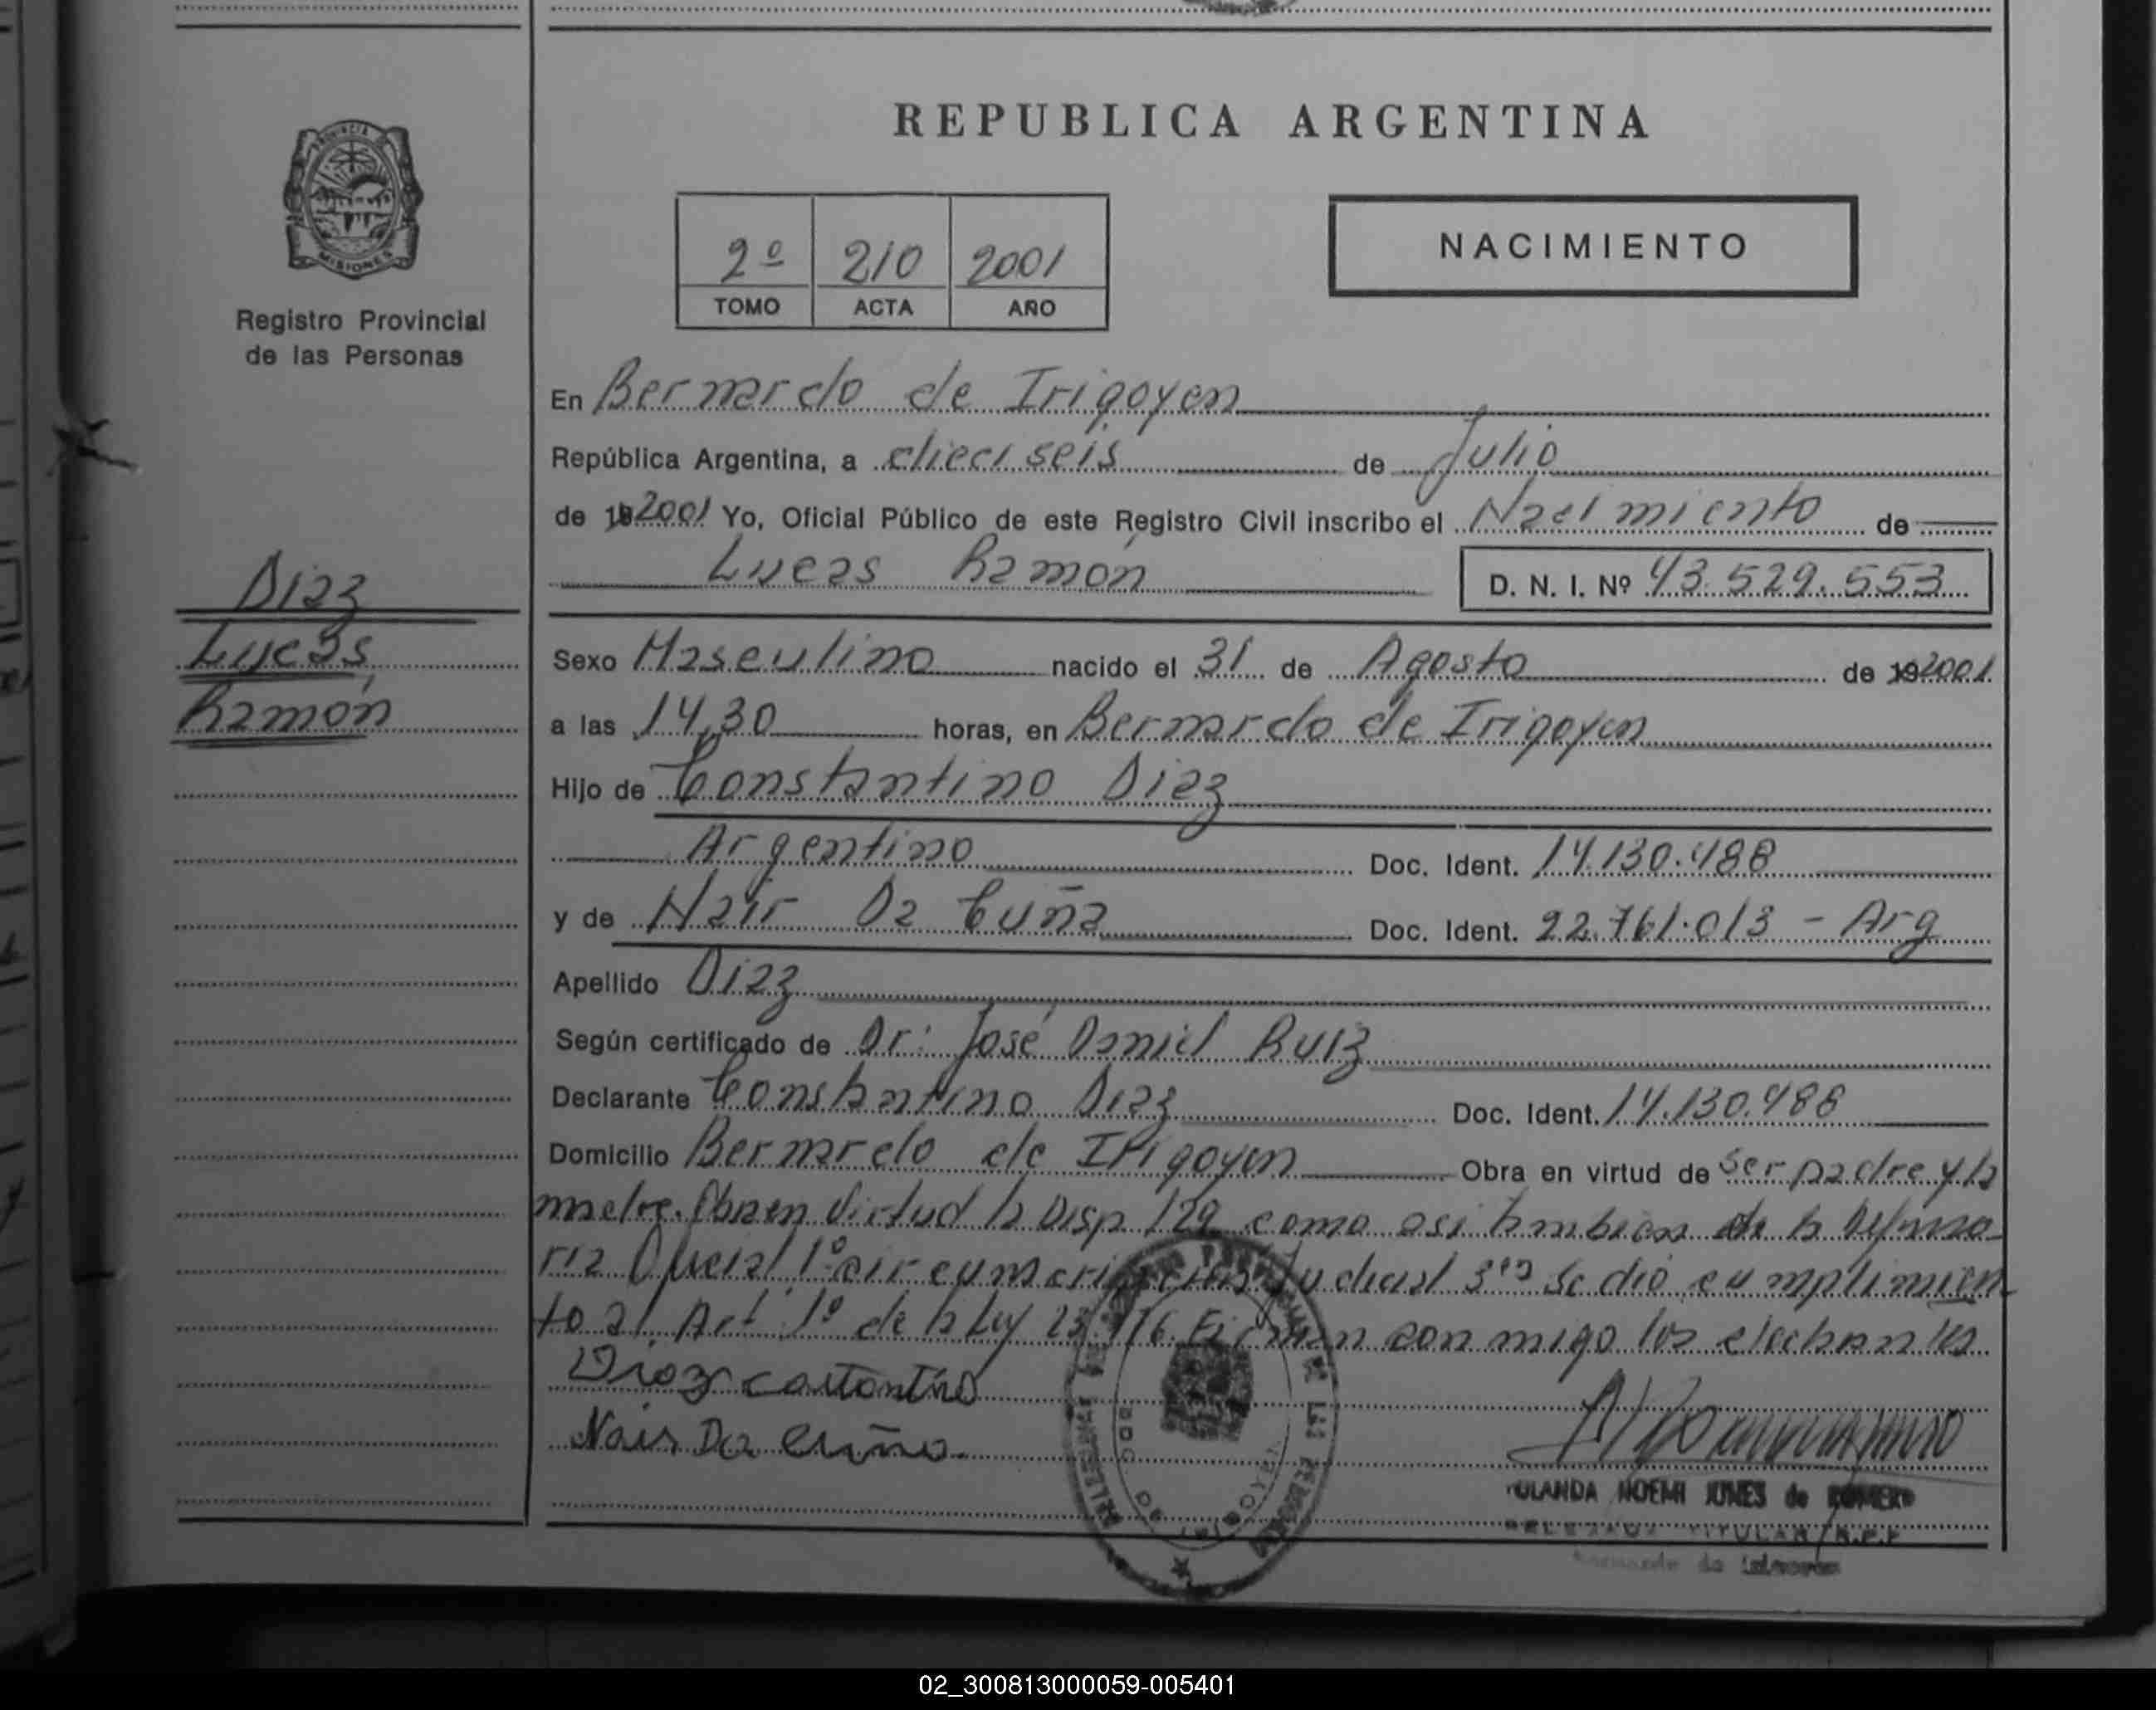 REPUBLICA ARGENTINA
PROVINCIA DE
MISIONES
Registro Provincial
de las Personas
2º 210 2001
TOMO ACTA AÑO
NACIMIENTO
En Bernardo de Irigoyen
República Argentina, a dieciseis de Julio
de 2001 Yo, Oficial Público de este Registro Civil inscribo el Nacimiento de
Lucas Ramón D. N. I. Nº 43.529.553
Diaz
Lucas
Ramón
Sexo Masculino nacido el 31 de Agosto de 192001
a las 14,30 horas, en Bernardo de Irigoyen
Hijo de Constantino Diaz
Argentino Doc. Ident. 14.130.488
y de Nair Da Cuña Doc. Ident. 22.761.013 - Arg
Apellido Diaz
Según certificado de Dr: José Daniel Ruiz
Declarante Constantino Diaz Doc. Ident. 14.130.488
Domicilio Bernardo de Irigoyen Obra en virtud de ser padre y la
madre. Obra en virtud la Disp 129 como asi tambien de la Defenso
ria Oficial 1º circunscripcion Judicial 3ra Se dió cumplimien
to al Art 1º de la Ley Firman con migo los
Diaz
Nair Da Cuña
YOLANDA NOEMI JONES de ROMERO
DELEGADA TITULAR R.P.P
Bernardo de Irigoyen
02_300813000059-005401